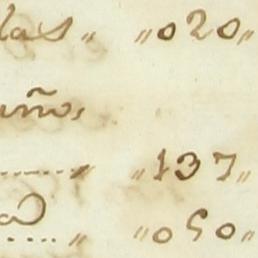 las " " 020 "
uño,
...... " " 137 "
a ..... " " 050 "